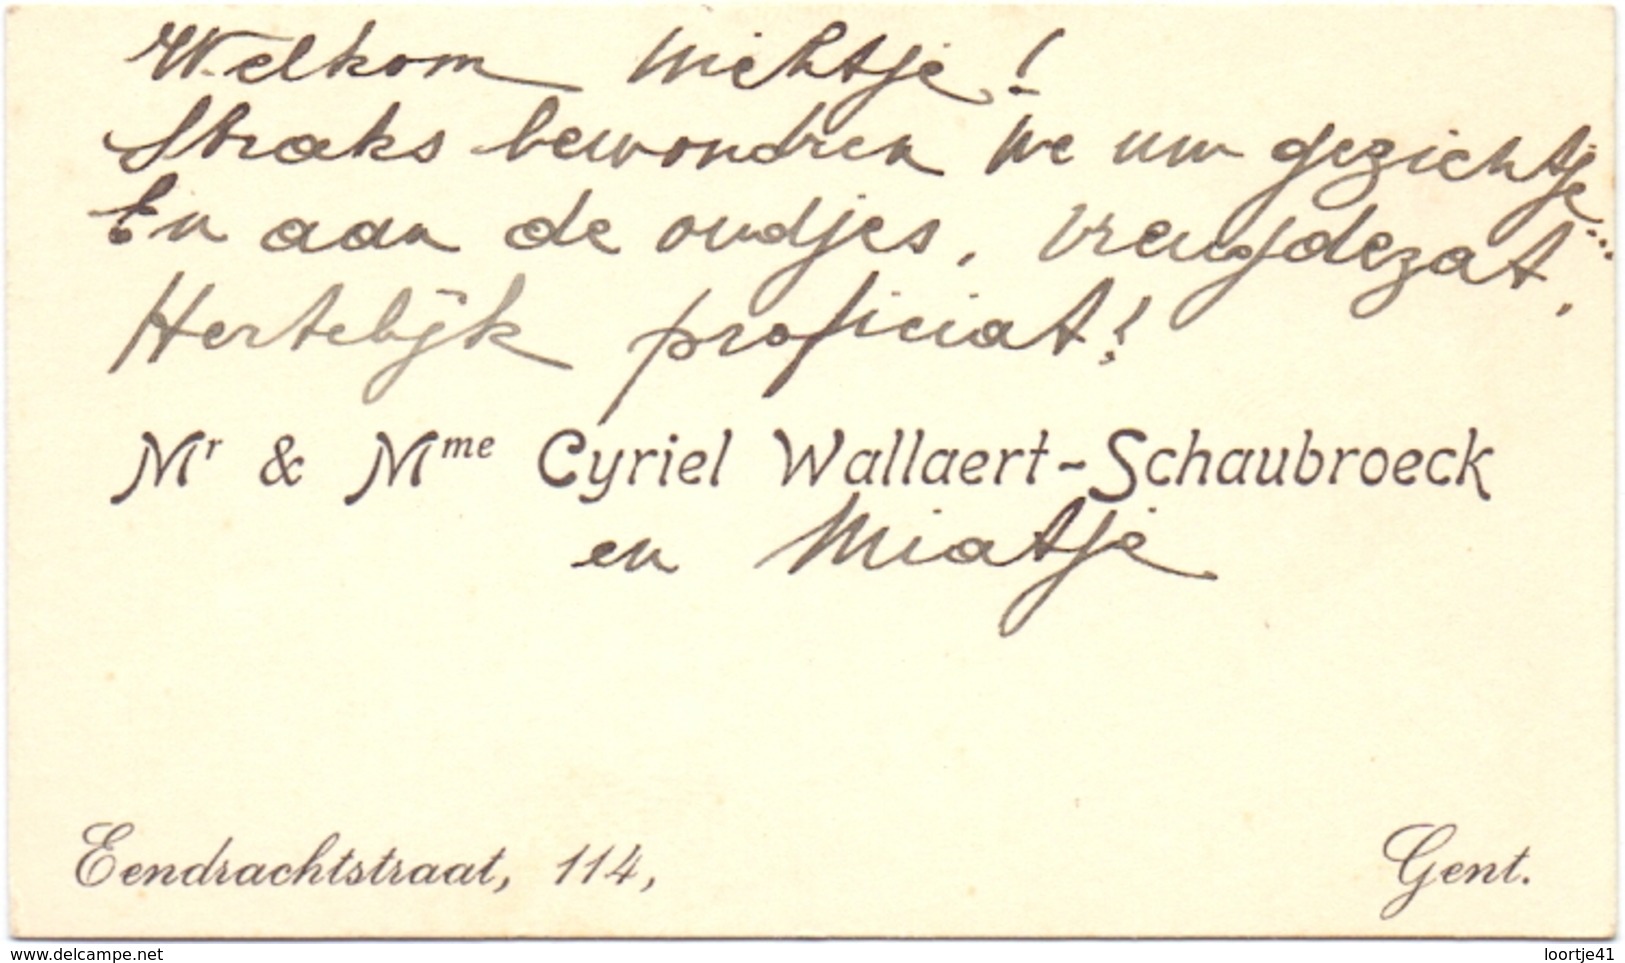 Welkom nichtje!
Straks bewondren we uw gezichtje...
En aan de oudjes, vreugdezat,
Hertelijk proficiat!
Mr & Mme Cyriel Wallaert-Schaubroeck
en Miatje
Eendrachtstraat, 114, Gent.
www.delcampe.net loortje41